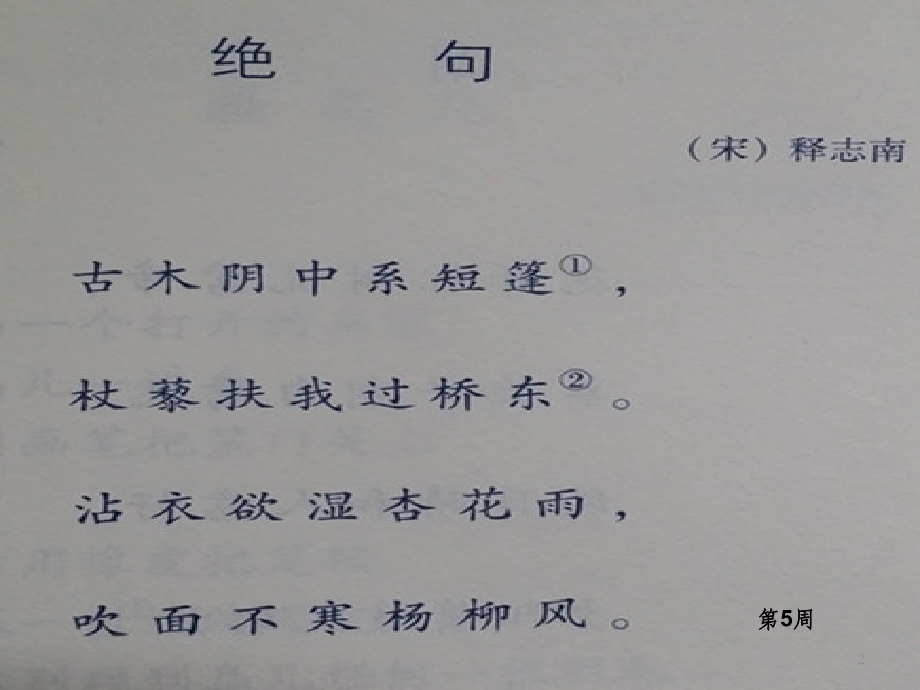 绝句
（宋）释志南
古木阴中系短篷①，
杖藜扶我过桥东②。
沾衣欲湿杏花雨，
吹面不寒杨柳风。
第5周
2